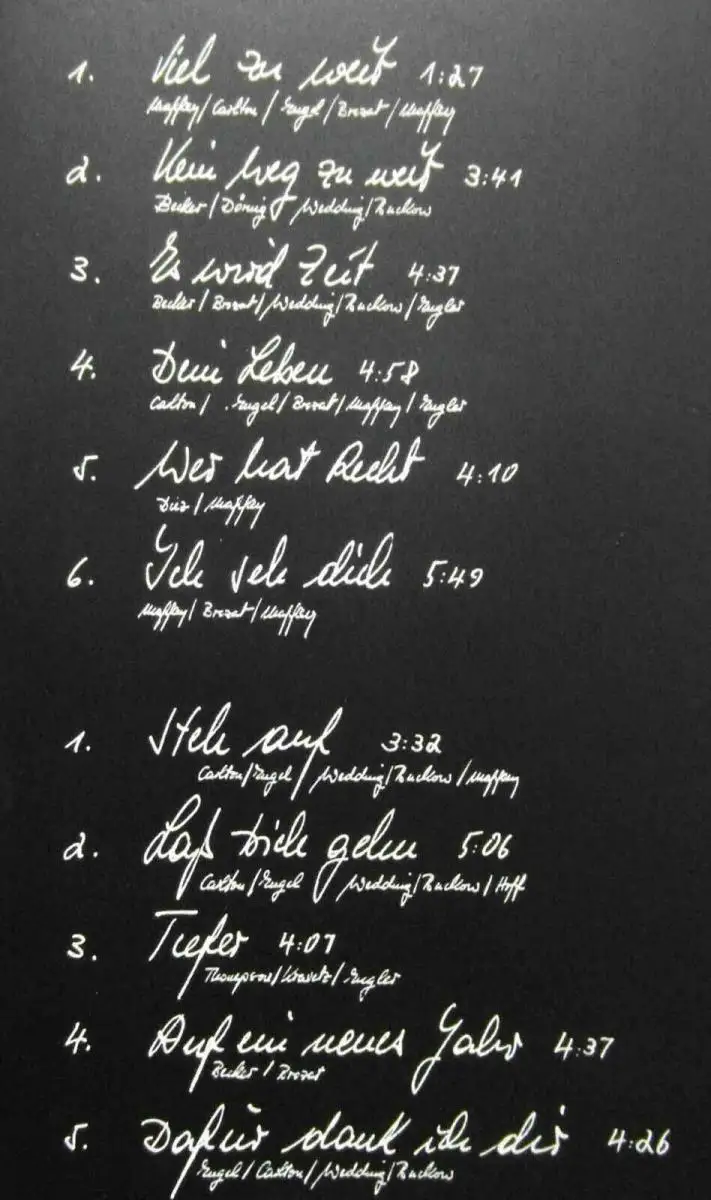 1. Viel zu weit 1:27
Maffay / Carlton / Engel / Brezat / Maffay
2. Kein Weg zu weit 3:41
Becker / Döring / Wedding / Zuckow
3. Es wird Zeit 4:37
Becker / Brezat / Wedding / Zuckow / Engler
4. Dein Leben 4:58
Carlton / Engel / Brezat / Maffay / Engler
5. Wer hat Recht 4:10
Diez / Maffay
6. Ich seh dich 5:49
Maffay / Brezat / Maffay
1. Steh auf 3:32
Carlton / Engel / Wedding / Zuckow / Maffay
2. Laß Dich gehn 5:06
Carlton / Engel / Wedding / Zuckow / Hoff
3. Tiefer 4:07
Thompson / Kravetz / Engler
4. Auf ein neues Jahr 4:37
Becker / Brezat
5. Dafür dank ich dir 4:26
Engel / Carlton / Wedding / Zuckow